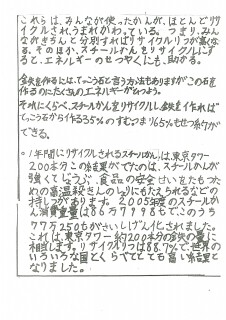 これらは、みんなが使ったかんが、ほとんどリ
サイクルされ、うまれかわっている。つまり、みん
ながきちんと分別すればリサイクルりつが高くな
る。そのほか、スチールかんをリサイクルにす
ると、エネルギーのせつやくにも、助かる。
鉄を作るには、てっこうせきと言う石がありますがこの石を
作るのにたくさんのエネルギーがひつよう。
それにくらべ、スチールかんをリサイクルし鉄を作れば
てっこうせきから作る35%のすむつまり65%もせつ約が
できる。
○1年間にリサイクルされるスチールかんは、東京タワー
200本分この結果がでたのは、スチールかんが
強くてじょうぶ、食品の安全せいをたもつた
めの高温殺きんのしょりにもたえられるなどの
持しつがあります。2005年度のスチールか
ん消費重量は86万7998tでこのうち
77万250tがさいしげんか化されました。
これは、東京タワー約200本分の鉄の量に
相当します。リサイクルりつは88.7%で、世界の
いろいろな国とくらべてとても高い結果と
なりました。